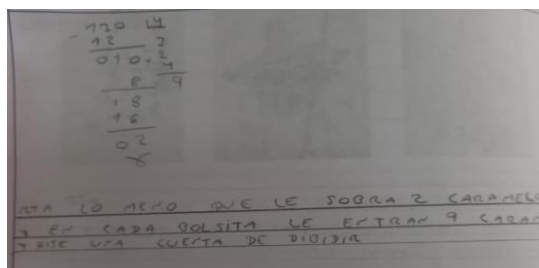 130 4
- 12 3
010 + 2
8 4
18 9
16
02
RTA LO MENO QUE LE SOBRA 2 CARAMELO
Y EN CADA BOLSITA LE ENTRAN 9 CARAM
Y HISE UNA CUENTA DE DIBIDIR